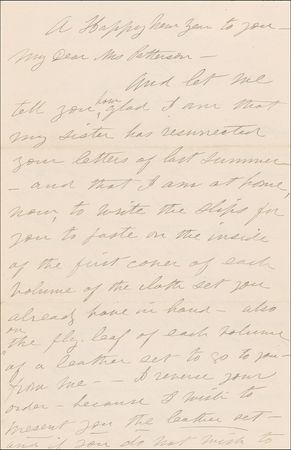 A Happy New Year to you —
My Dear Ms Patterson —
And let me
tell you how glad I am that
my sister has resurrected
your letters of last summer
— and that I am at home,
now, to write the slips for
you to paste on the inside
of the first cover of each
volume of the cloth set you
already have in hand — also
on the fly-leaf of each volume
of a leather set to go to you
from me — — I reverse your
order — because I wish to
present you the leather set —
and if you do not wish to